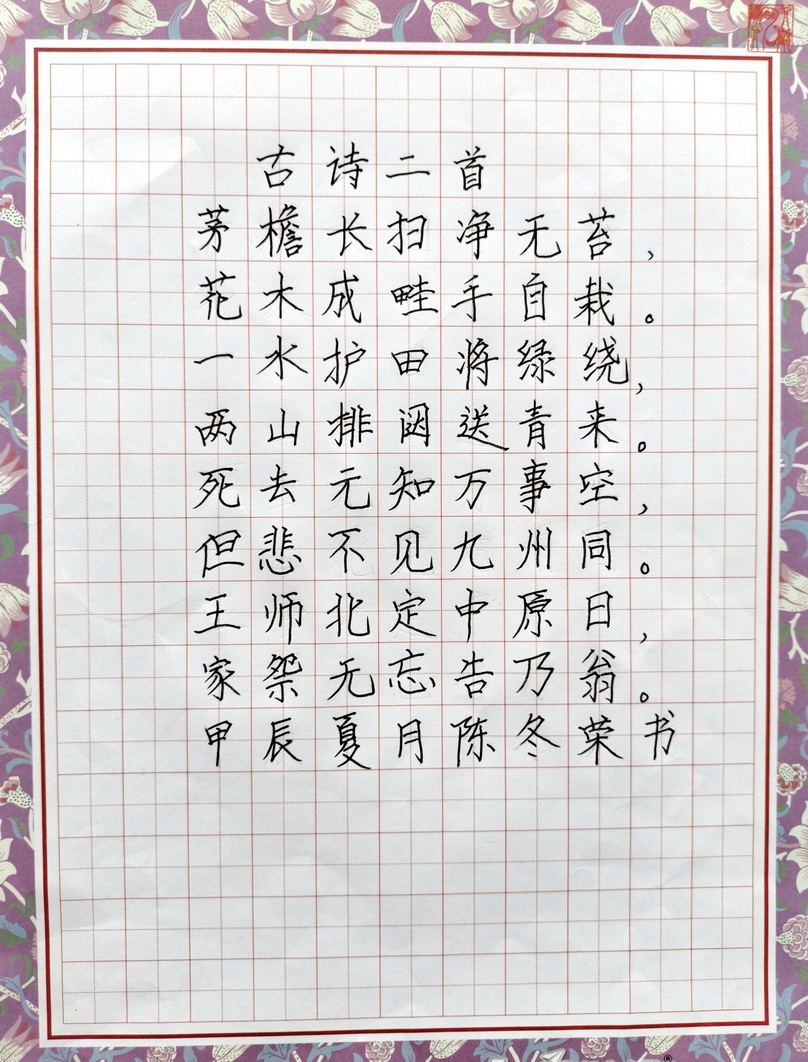 古诗二首
茅檐长扫净无苔，
花木成畦手自栽。
一水护田将绿绕，
两山排闼送青来。
死去元知万事空，
但悲不见九州同。
王师北定中原日，
家祭无忘告乃翁。
甲辰夏月陈冬荣书